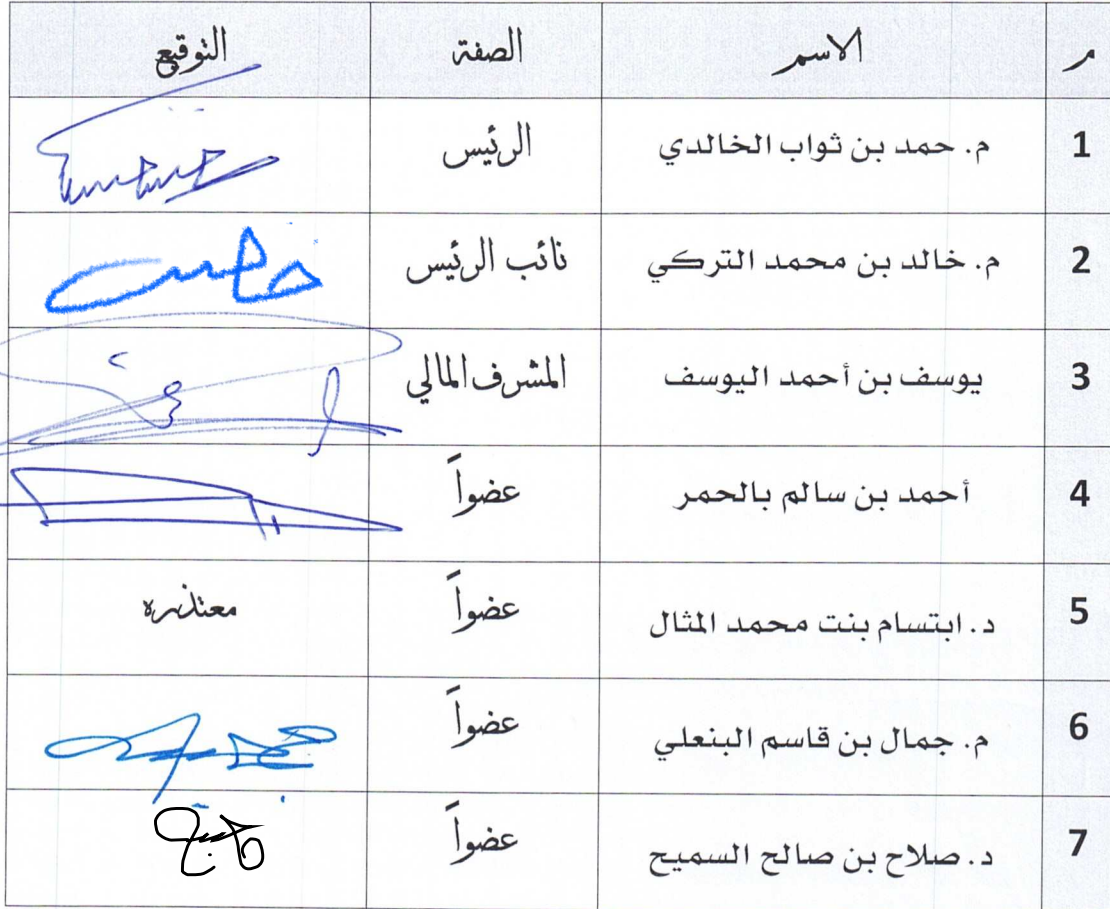 م الاسم الصفة التوقيع
1 م. حمد بن ثواب الخالدي الرئيس
2 م. خالد بن محمد التركي نائب الرئيس
3 يوسف بن أحمد اليوسف المشرف المالي
4 أحمد بن سالم بالحمر عضواً
5 د. ابتسام بنت محمد المثال عضواً معتذره
6 م. جمال بن قاسم البنعلي عضواً
7 د. صلاح بن صالح السميح عضواً